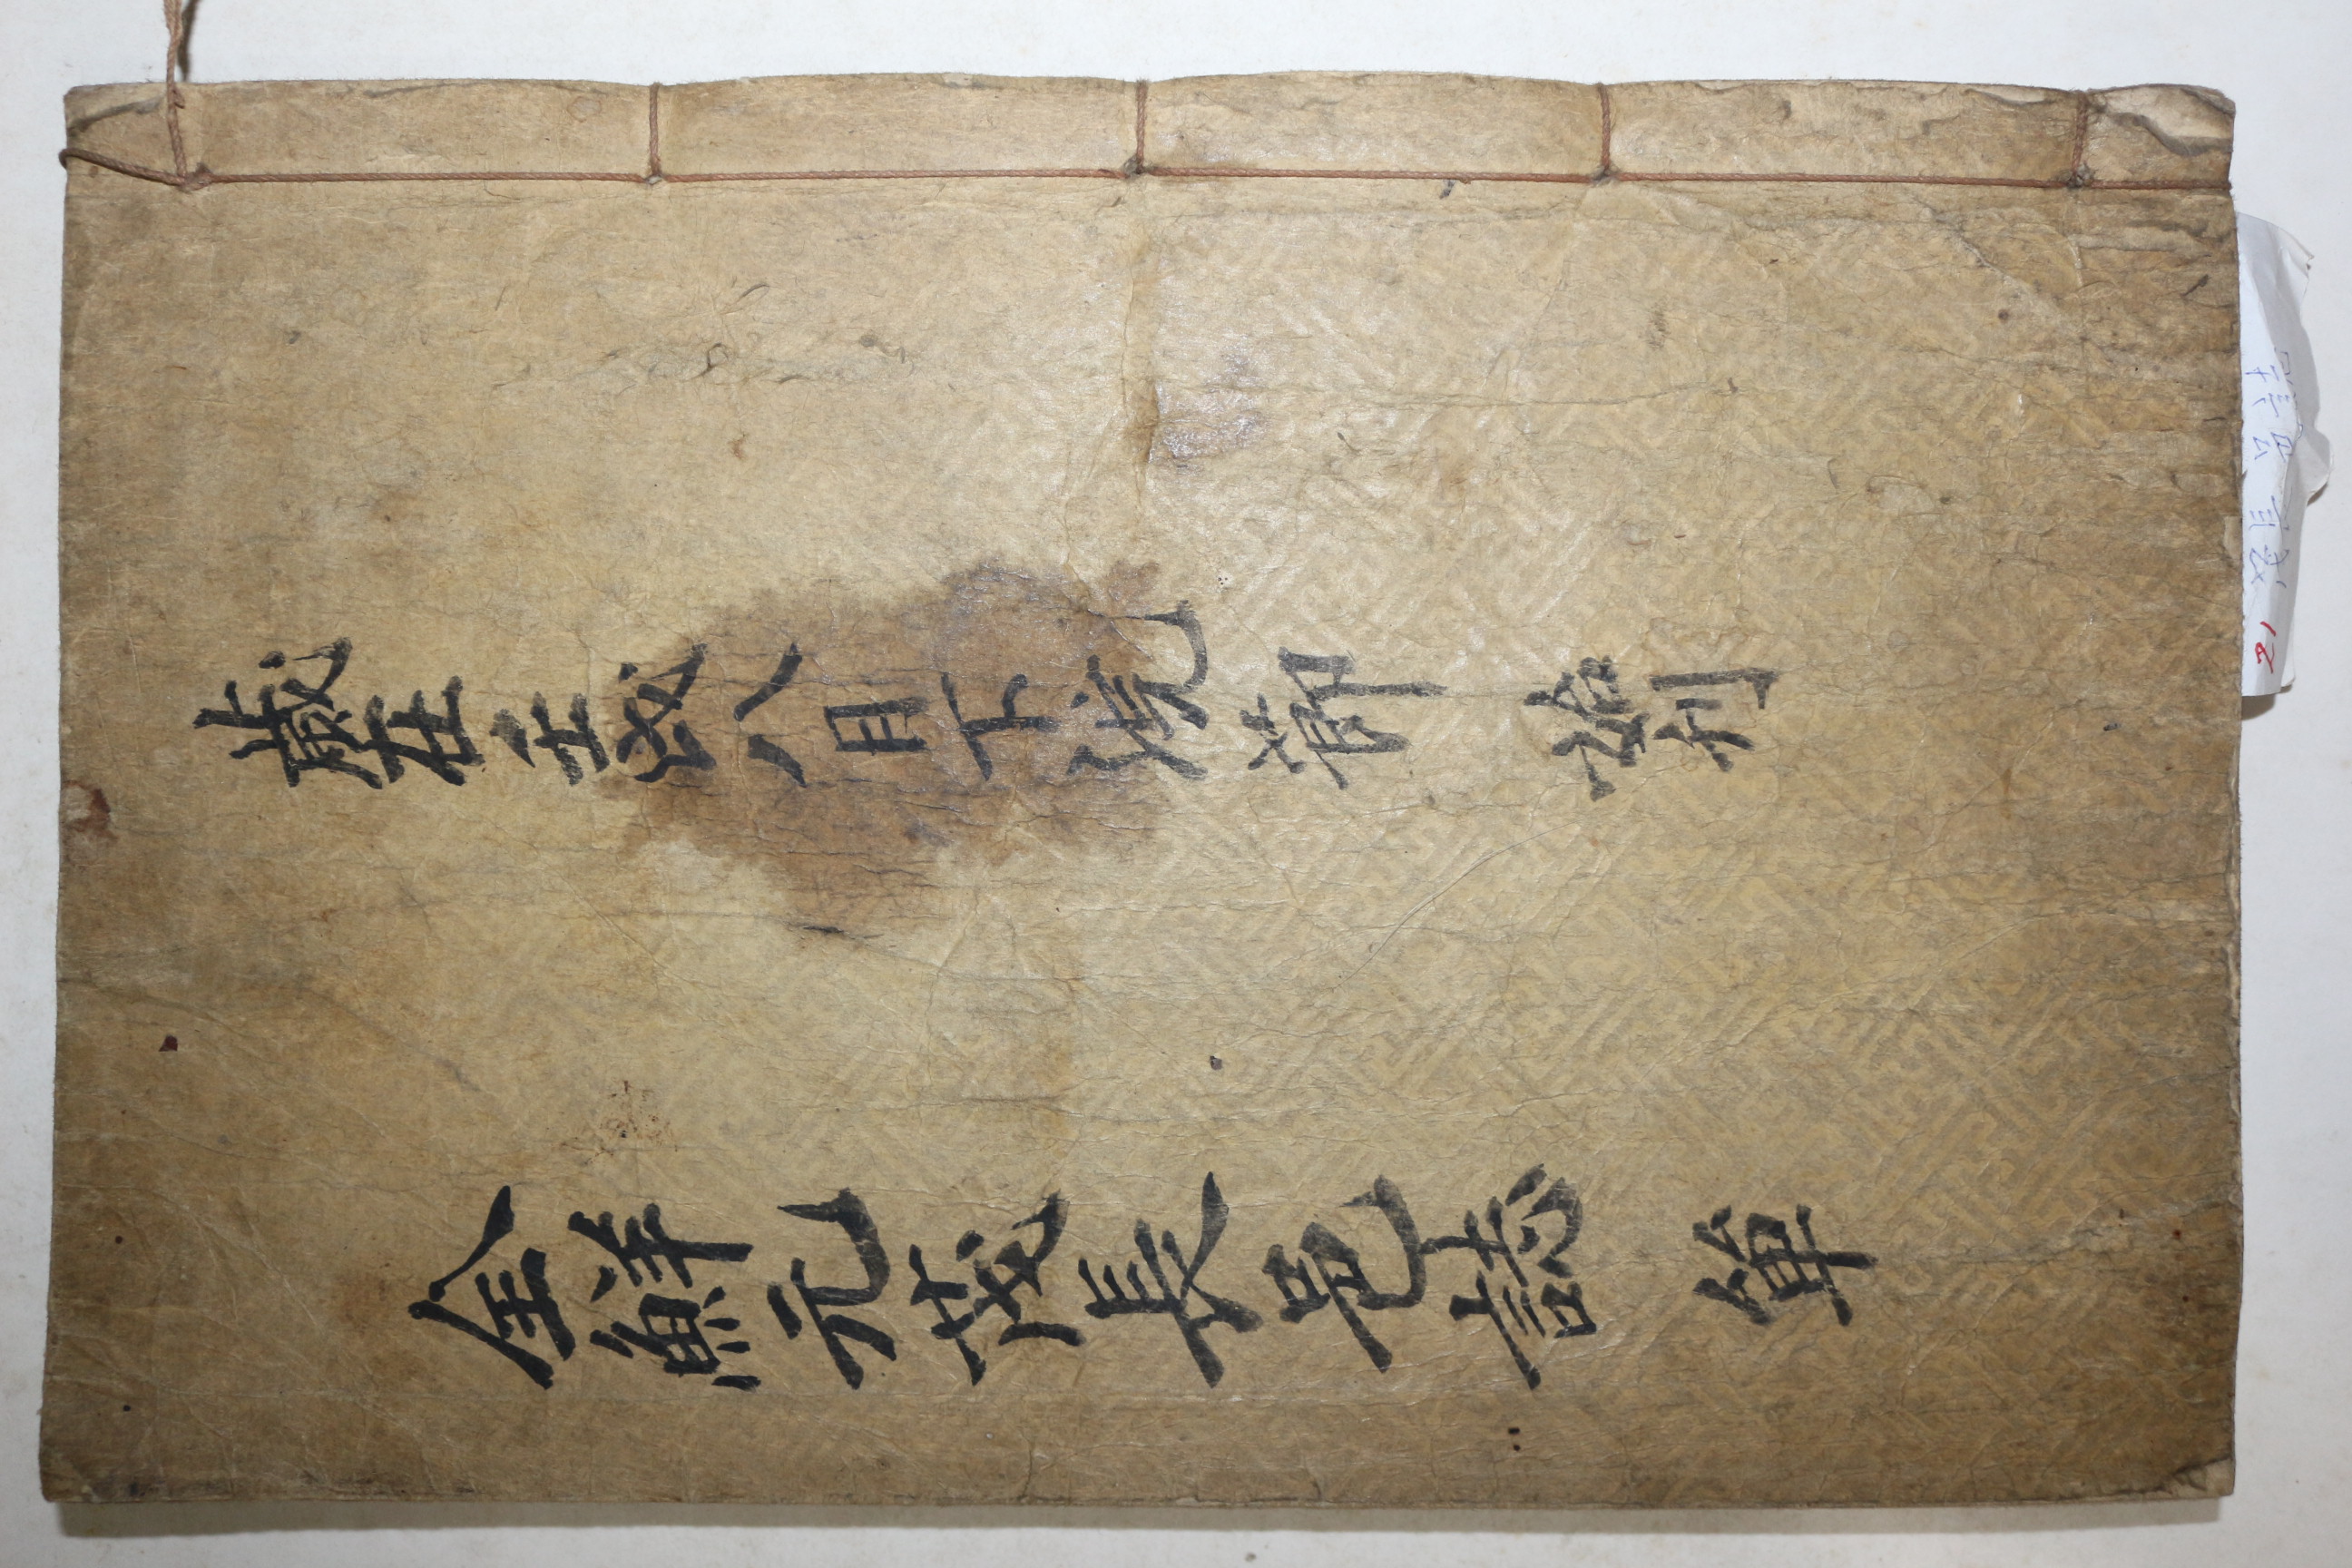 歲在壬戌八月下浣莭 始刊
全鮮元茂長邑誌 單
21 茂長 邑誌